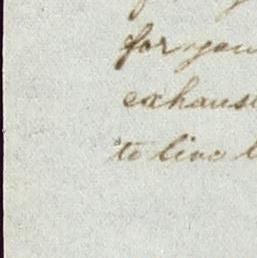 for you
exhaust
to live